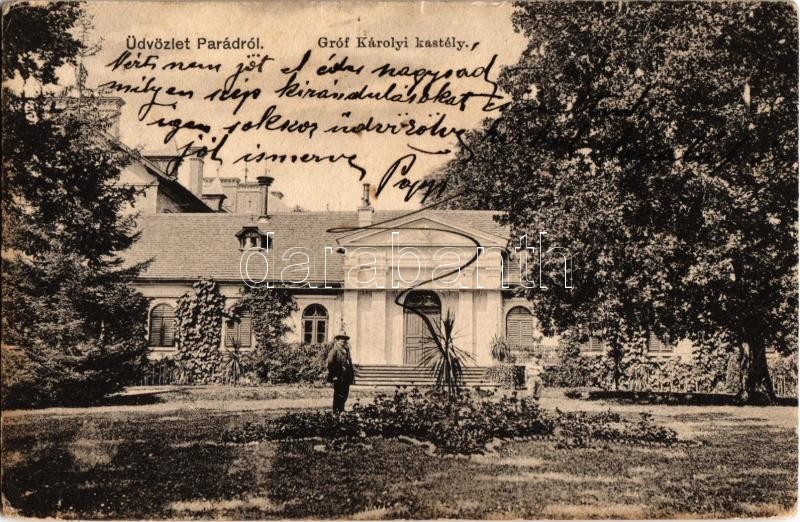 Üdvözlet Parádról.
Gróf Károlyi kastély.
nem jöt el édes nagysád
milyen szép kirándulásokat
igen sokkor üdvözölve
jól ismerve
darabanth